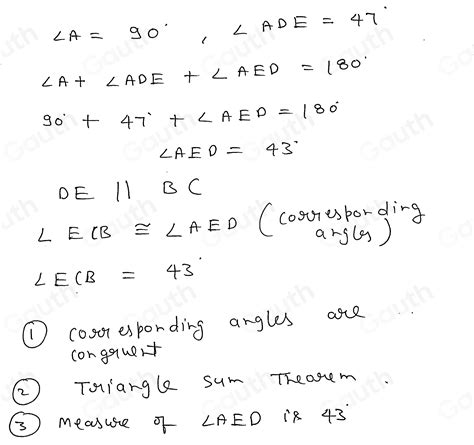 ∠A = 90° , ∠ADE = 47°
∠A + ∠ADE + ∠AED = 180°
90° + 47° + ∠AED = 180°
∠AED = 43°
DE || BC
∠ECB ≅ ∠AED (corresponding angles)
∠ECB = 43°
① corresponding angles are
congruent
② Triangle Sum Theorem.
③ measure of ∠AED is 43°
Gauth